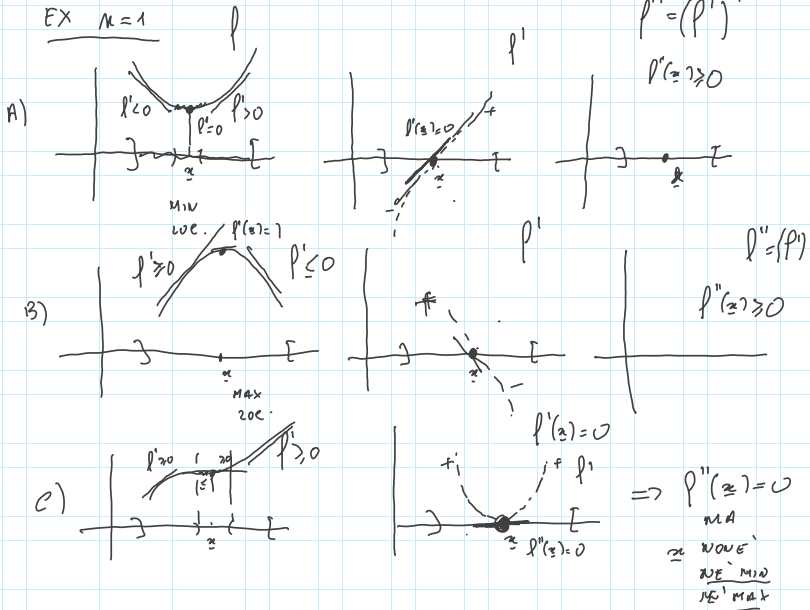 EX n=1
f
f'
f''=(f')'
f''(x)≥0
A)
f'<0
f'>0
f'=0
x
MIN
LOC.
f'(x)=0
+
-
x
x
B)
f'≥0
f'(x)=?
f'≤0
x
MAX
LOC.
f'
+
-
x
f''=(f')
f''(x)≥0
C)
f'≥0
≥0
f'≥0
x
f'(x)=0
+
+
f'
x
f''(x)=0
=> f''(x)=0
MA
x NON E'
NE' MIN
NE' MAX